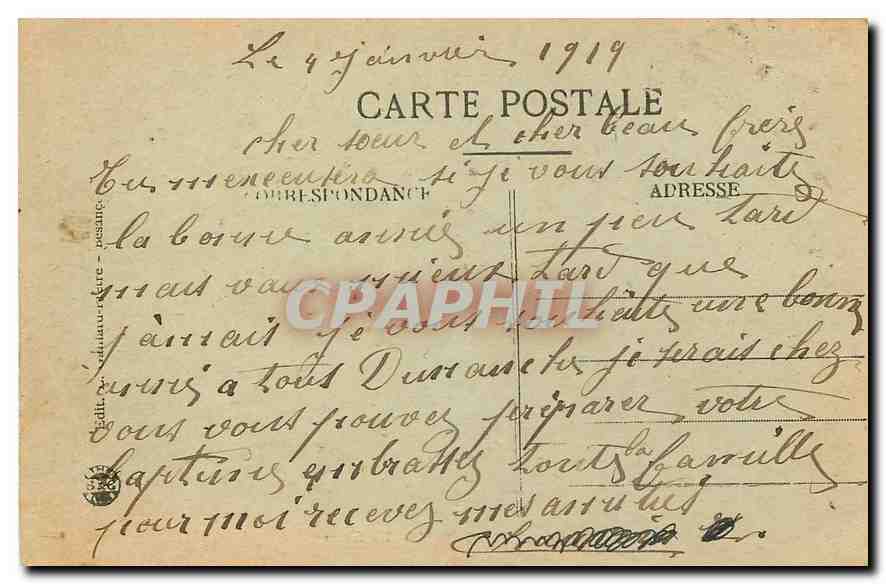 Le 4 janvier 1919
CARTE POSTALE
cher sœur et cher beau frère
Tu si je vous souhaite
CORRESPONDANCE ADRESSE
la bonne anné un peu tard
mais vau mieux tard que
CPAPHIL
jamait je vous souhaite une bonne
anné a tous Dimanche je serais chez
vous vous pouvez préparer votre
embrassez toute la famille
pour moi recevez mes amitiés
Edit. - Besanç